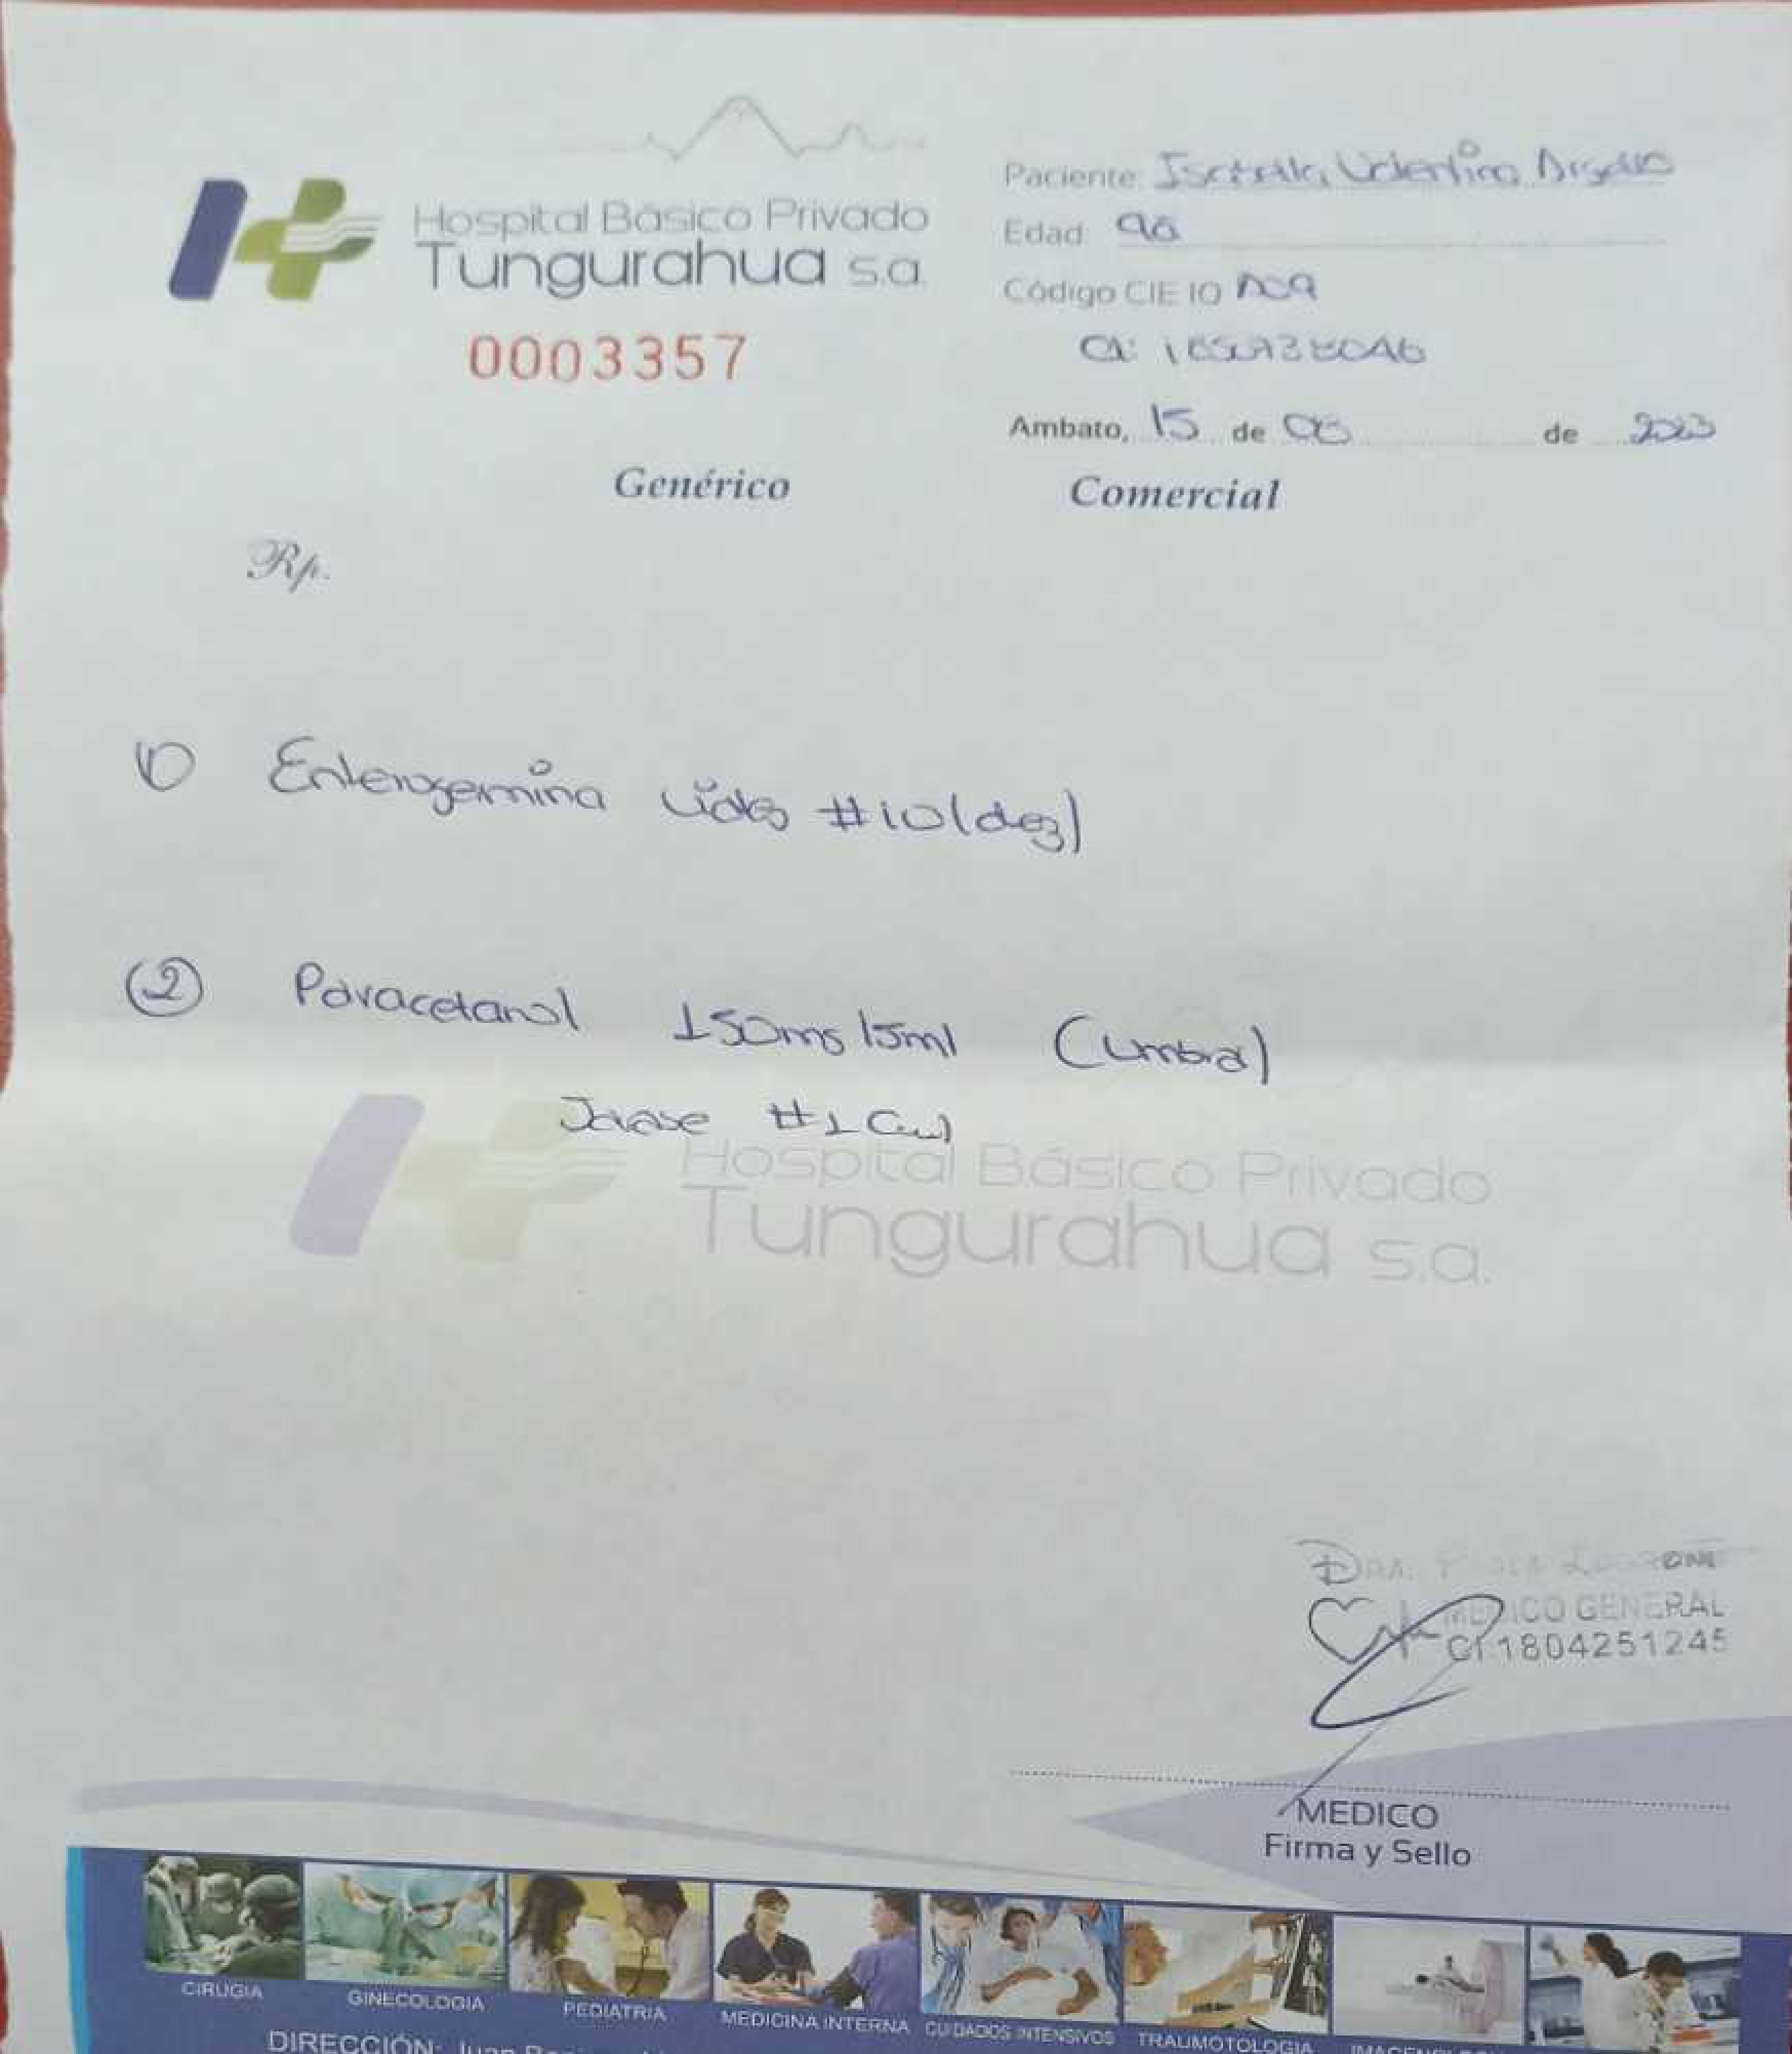 Hospital Básico Privado
Tungurahua s.a.
0003357
Paciente: Isabella Valentina
Edad: 9a
Código CIE 10 A09
CI:
Ambato, 15 de de 2023
Genérico Comercial
Rp.
1) Enterogermina vials #10 (diez)
2) Paracetamol 150mg/5ml (Umbral)
#1
Hospital Básico Privado
Tungurahua s.a.
DRA.
MEDICO GENERAL
CI 1804251245
MEDICO
Firma y Sello
CIRUGIA GINECOLOGIA PEDIATRIA MEDICINA INTERNA CUIDADOS INTENSIVOS TRAUMOTOLOGIA
DIRECCIÓN: Juan